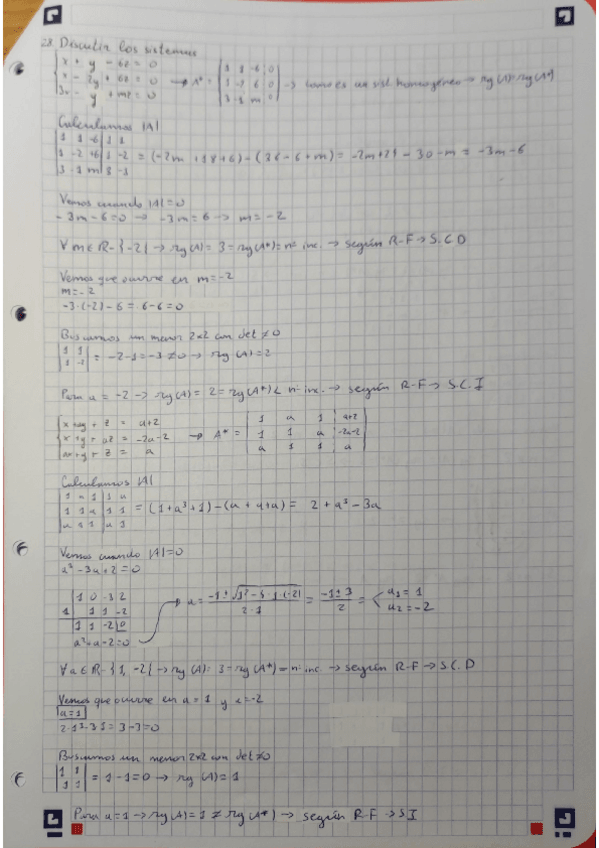 28. Discutir los sistemas
x + y - 6z = 0
x - 2y + 6z = 0 → A* = 1 1 -6 0 → como es un sist. homogéneo → rg (A) = rg (A*)
3x - y + mz = 0 1 -2 6 0
3 -1 m 0
Calculamos |A|
1 1 -6 1 1
1 -2 +6 1 -2 = (-2m + 18 + 6) - (36 - 6 + m) = -2m + 24 - 30 - m = -3m - 6
3 -1 m 3 -1
Vemos cuando |A| = 0
-3m - 6 = 0 → -3m = 6 → m = -2
∀ m ∈ R - {-2} → rg (A) = 3 = rg (A*) = nº inc. → según R-F → S.C.D
Vemos que ocurre en m = -2
m = -2
-3·(-2) - 6 = 6 - 6 = 0
Buscamos un menor 2x2 con det ≠ 0
1 1
1 -2 = -2 - 1 = -3 ≠ 0 → rg (A) = 2
Para a = -2 → rg (A) = 2 = rg (A*) < nº inc. → según R-F → S.C.I
x + ay + z = a + 2
x + y + az = -2a - 2 → A* = 1 a 1 a+2
ax + y + z = a 1 1 a -2a-2
a 1 1 a
Calculamos |A|
1 a 1 1 a
1 1 a 1 1 = (1 + a³ + 1) - (a + a + a) = 2 + a³ - 3a
a 1 1 a 1
Vemos cuando |A| = 0
a³ - 3a + 2 = 0
1 0 -3 2
1 1 1 -2
1 1 -2 0
a² + a - 2 = 0
a = -1 ± √1² - 4·1·(-2) / 2·1 = -1 ± 3 / 2 = a₁ = 1
a₂ = -2
∀ a ∈ R - {1, -2} → rg (A) = 3 = rg (A*) = nº inc. → según R-F → S.C.D
Vemos que ocurre en a = 1 y a = -2
a = 1
2 + 1³ - 3·1 = 3 - 3 = 0
Buscamos un menor 2x2 con det ≠ 0
1 1
1 1 = 1 - 1 = 0 → rg (A) = 1
Para a = 1 → rg (A) = 1 ≠ rg (A*) → según R-F → S.I